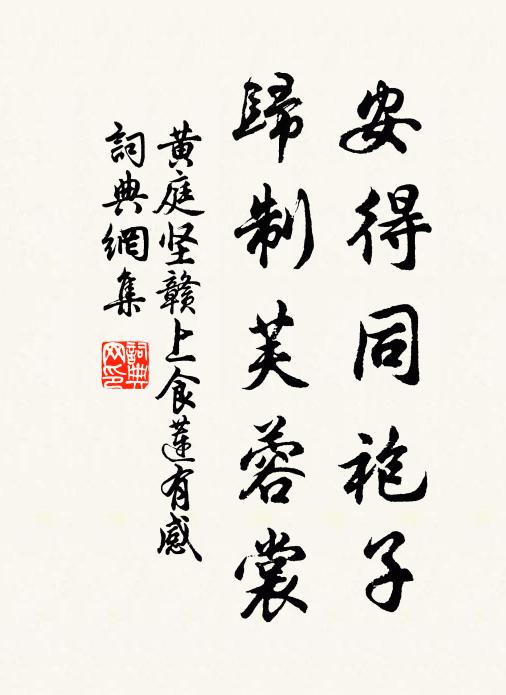 安得同袍子
歸制芙蓉裳
黄庭坚赣上食蓮有感
詞典網集
詞典网印